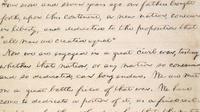 Four score and seven years ago our fathers brought
forth, upon this continent, a new nation, conceived
in liberty, and dedicated to the proposition that
all men are created equal.
Now we are engaged in a great civil war, testing
whether that nation, or any nation, so conceived,
and so dedicated, can long endure. We are met
on a great battle field of that war. We have
come to dedicate a portion of it, as a final rest